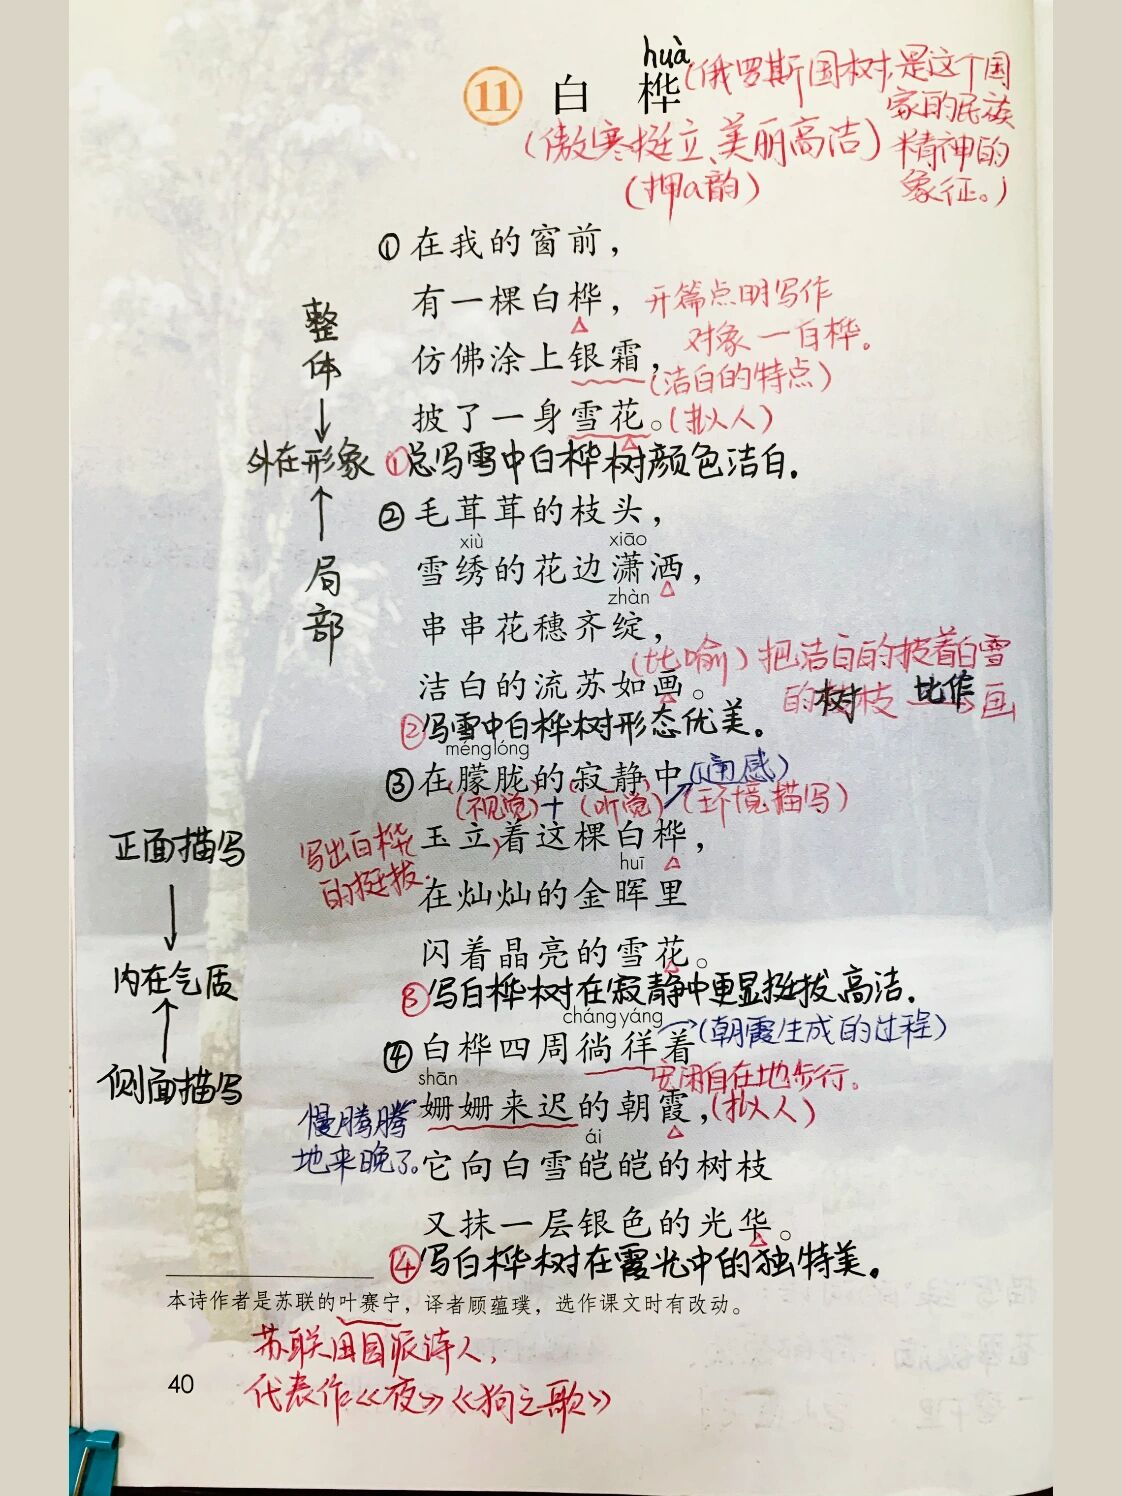 huà
11 白 桦
(俄罗斯国树,是这个国
家的民族
精神的
象征。)
(傲寒挺立、美丽高洁)
(押a韵)
①在我的窗前，
有一棵白桦，
开篇点明写作
对象一白桦。
仿佛涂上银霜，
(洁白的特点)
披了一身雪花。(拟人)
①总写雪中白桦树颜色洁白.
整体
↓
外在形象
↑
局部
②毛茸茸的枝头，
xiù xiāo
雪绣的花边潇洒，
zhàn
串串花穗齐绽，
(比喻)把洁白的披着白雪
的树枝 比作画
洁白的流苏如画。
②写雪中白桦树形态优美。
ménglóng
③在朦胧的寂静中
(通感)
(视觉)+(听觉) (环境描写)
写出白桦
的挺拔.
玉立着这棵白桦，
huī
在灿灿的金晖里
闪着晶亮的雪花。
③写白桦树在寂静中更显挺拔高洁.
正面描写
↓
内在气质
↑
侧面描写
chángyáng
④白桦四周徜徉着
→(朝霞生成的过程)
安闲自在地步行。
shān
姗姗来迟的朝霞，(拟人)
慢腾腾
地来晚了。
ái
它向白雪皑皑的树枝
又抹一层银色的光华。
④写白桦树在霞光中的独特美。
本诗作者是苏联的叶赛宁，译者顾蕴璞，选作课文时有改动。
苏联田园派诗人,
代表作《夜》《狗之歌》
40